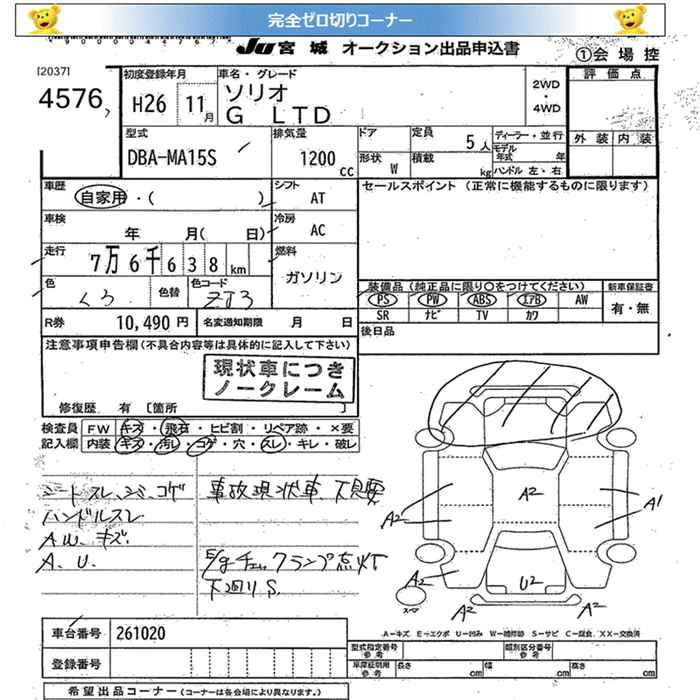 完全ゼロ切りコーナー
JU 宮城 オークション出品申込書
①会場控
[2037]
4576
初度登録年月
H26 11月
車名・グレード
ソリオ
G LTD
2WD
・
4WD
評価点
外装 内装
型式
DBA-MA15S
排気量
1200 cc
ドア
形状 W
定員 5人
積載 kg
ディーラー・並行
モデル年式 年
ハンドル左・右
車歴 自家用・( )
シフト AT
セールスポイント (正常に機能するものに限ります)
車検 年 月( 日)
冷房 AC
走行 7万6千638km
燃料 ガソリン
色 くろ
色替
色コード ZJ3
装備品 (純正品に限り○をつけてください)
新車保証書
PS PW ABS エアB AW
有・無
SR ナビ TV カワ
R券 10,490円
名変通知期限 月 日
後日品
注意事項申告欄(不具合内容等は具体的に記入して下さい)
現状車につき
ノークレーム
修復歴 有 [箇所 ]
検査員 FW キズ・飛石・ヒビ割・リペア跡・×要
記入欄 内装 キズ・汚レ・コゲ・穴・スレ・キレ・破レ
シートスレ、シミ、コゲ
事故現状車、下見要
ハンドルスレ
A.W.キズ
A.U.
E/gチェックランプ点灯
下回りS.
A2
A2
A2
A1
A2
A2
U2
スペア
A2
A2
A-キズ E-エクボ U-凹み W-補修跡 S-サビ C-腐食 XX-交換済
車台番号 261020
登録番号
型式指定番号 参考
類別区分番号 参考
車庫証明用 参考
長さ cm 幅 cm 高さ cm
希望出品コーナー (コーナーは各会場により異なります。)